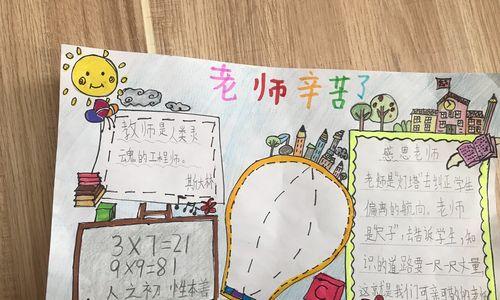 老师辛苦了
教师是人类灵
魂的工程师。
斯大林
3×7=21
9×9=81
人之初 性本善
感恩老师
老师是"灯塔"去纠正学生
偏离的航向。老师
是"尺子",去告诉学生,知
识的道路要一尺一尺丈量
这就是我们可亲可敬的老